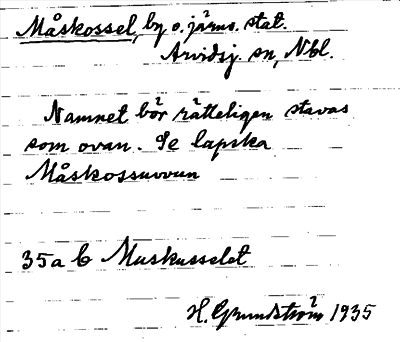 Måskossel, by o. järnv. stat.
Arvidsj. sn, Nbl.
Namnet bör rätteligen stavas
som ovan. Se lapska
Måskossuvvun
35a C Muskusselet
H. Grundström 1935